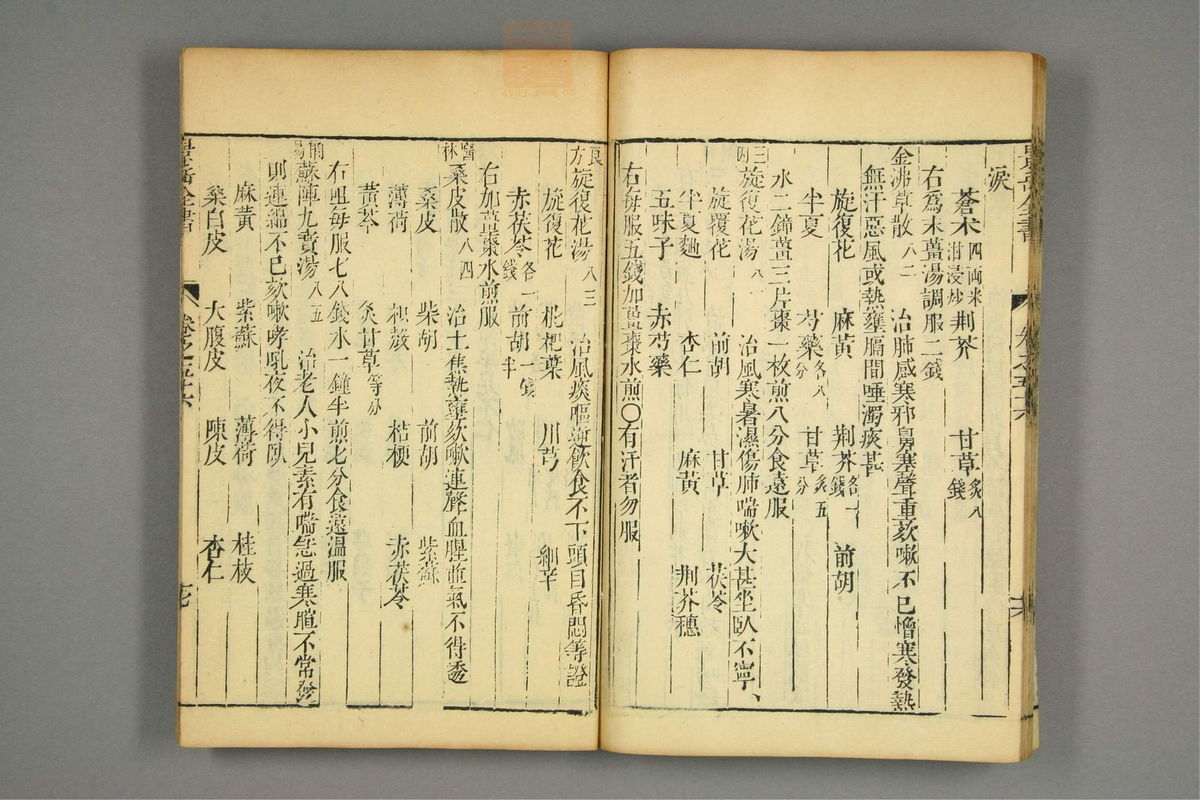 淚
蒼朮四両米泔浸炒 荆芥 甘草炙八錢
右爲末薑湯調服二錢
金沸草散八二 治肺感寒邪鼻塞聲重欬嗽不已憎寒發熱
無汗惡風或熱壅膈間唾濁痰甚
旋復花 麻黃 荆芥各一錢 前胡
半夏 芍藥各八分 甘草炙五分
水二鍾薑三片棗一枚煎八分食遠服
三因旋復花湯八 治風寒暑濕傷肺喘嗽大甚坐臥不寧
旋覆花 前胡 甘草 茯苓
半夏麯 杏仁 麻黃 荆芥穗
五味子 赤芍藥
右每服五錢加薑棗水煎〇有汗者勿服
景岳全書 卷之五十六
良方旋復花湯八三 治風痰嘔逆飲食不下頭目昏悶等證
旋復花 枇杷葉 川芎 細辛
赤茯苓各一錢 前胡一錢半
右加薑棗水煎服
醫林桑皮散八四 治上焦熱壅欬嗽連聲血腥並氣不得透
桑皮 柴胡 前胡 紫蘇
薄荷 枳殼 桔梗 赤茯苓
黃芩 炙甘草等分
右㕮咀每服七八錢水一鍾半煎七分食遠溫服
簡易蘇陳九寶湯八五 治老人小兒素有喘急遇寒暄不常發
則連綿不已欬嗽哮吼夜不得臥
麻黃 紫蘇 薄荷 桂枝
桑白皮 大腹皮 陳皮 杏仁
景岳全書 卷之五十六